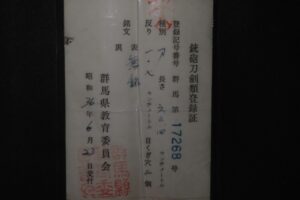 銃砲刀剣類登録証
登録記号番号 群馬 第 17268 号
種別 刀 長さ センチメートル
反り 一・八 センチメートル 目くぎ穴 個
銘文 表 無銘
裏
昭和 36年 6月 日交付
群馬県教育委員会